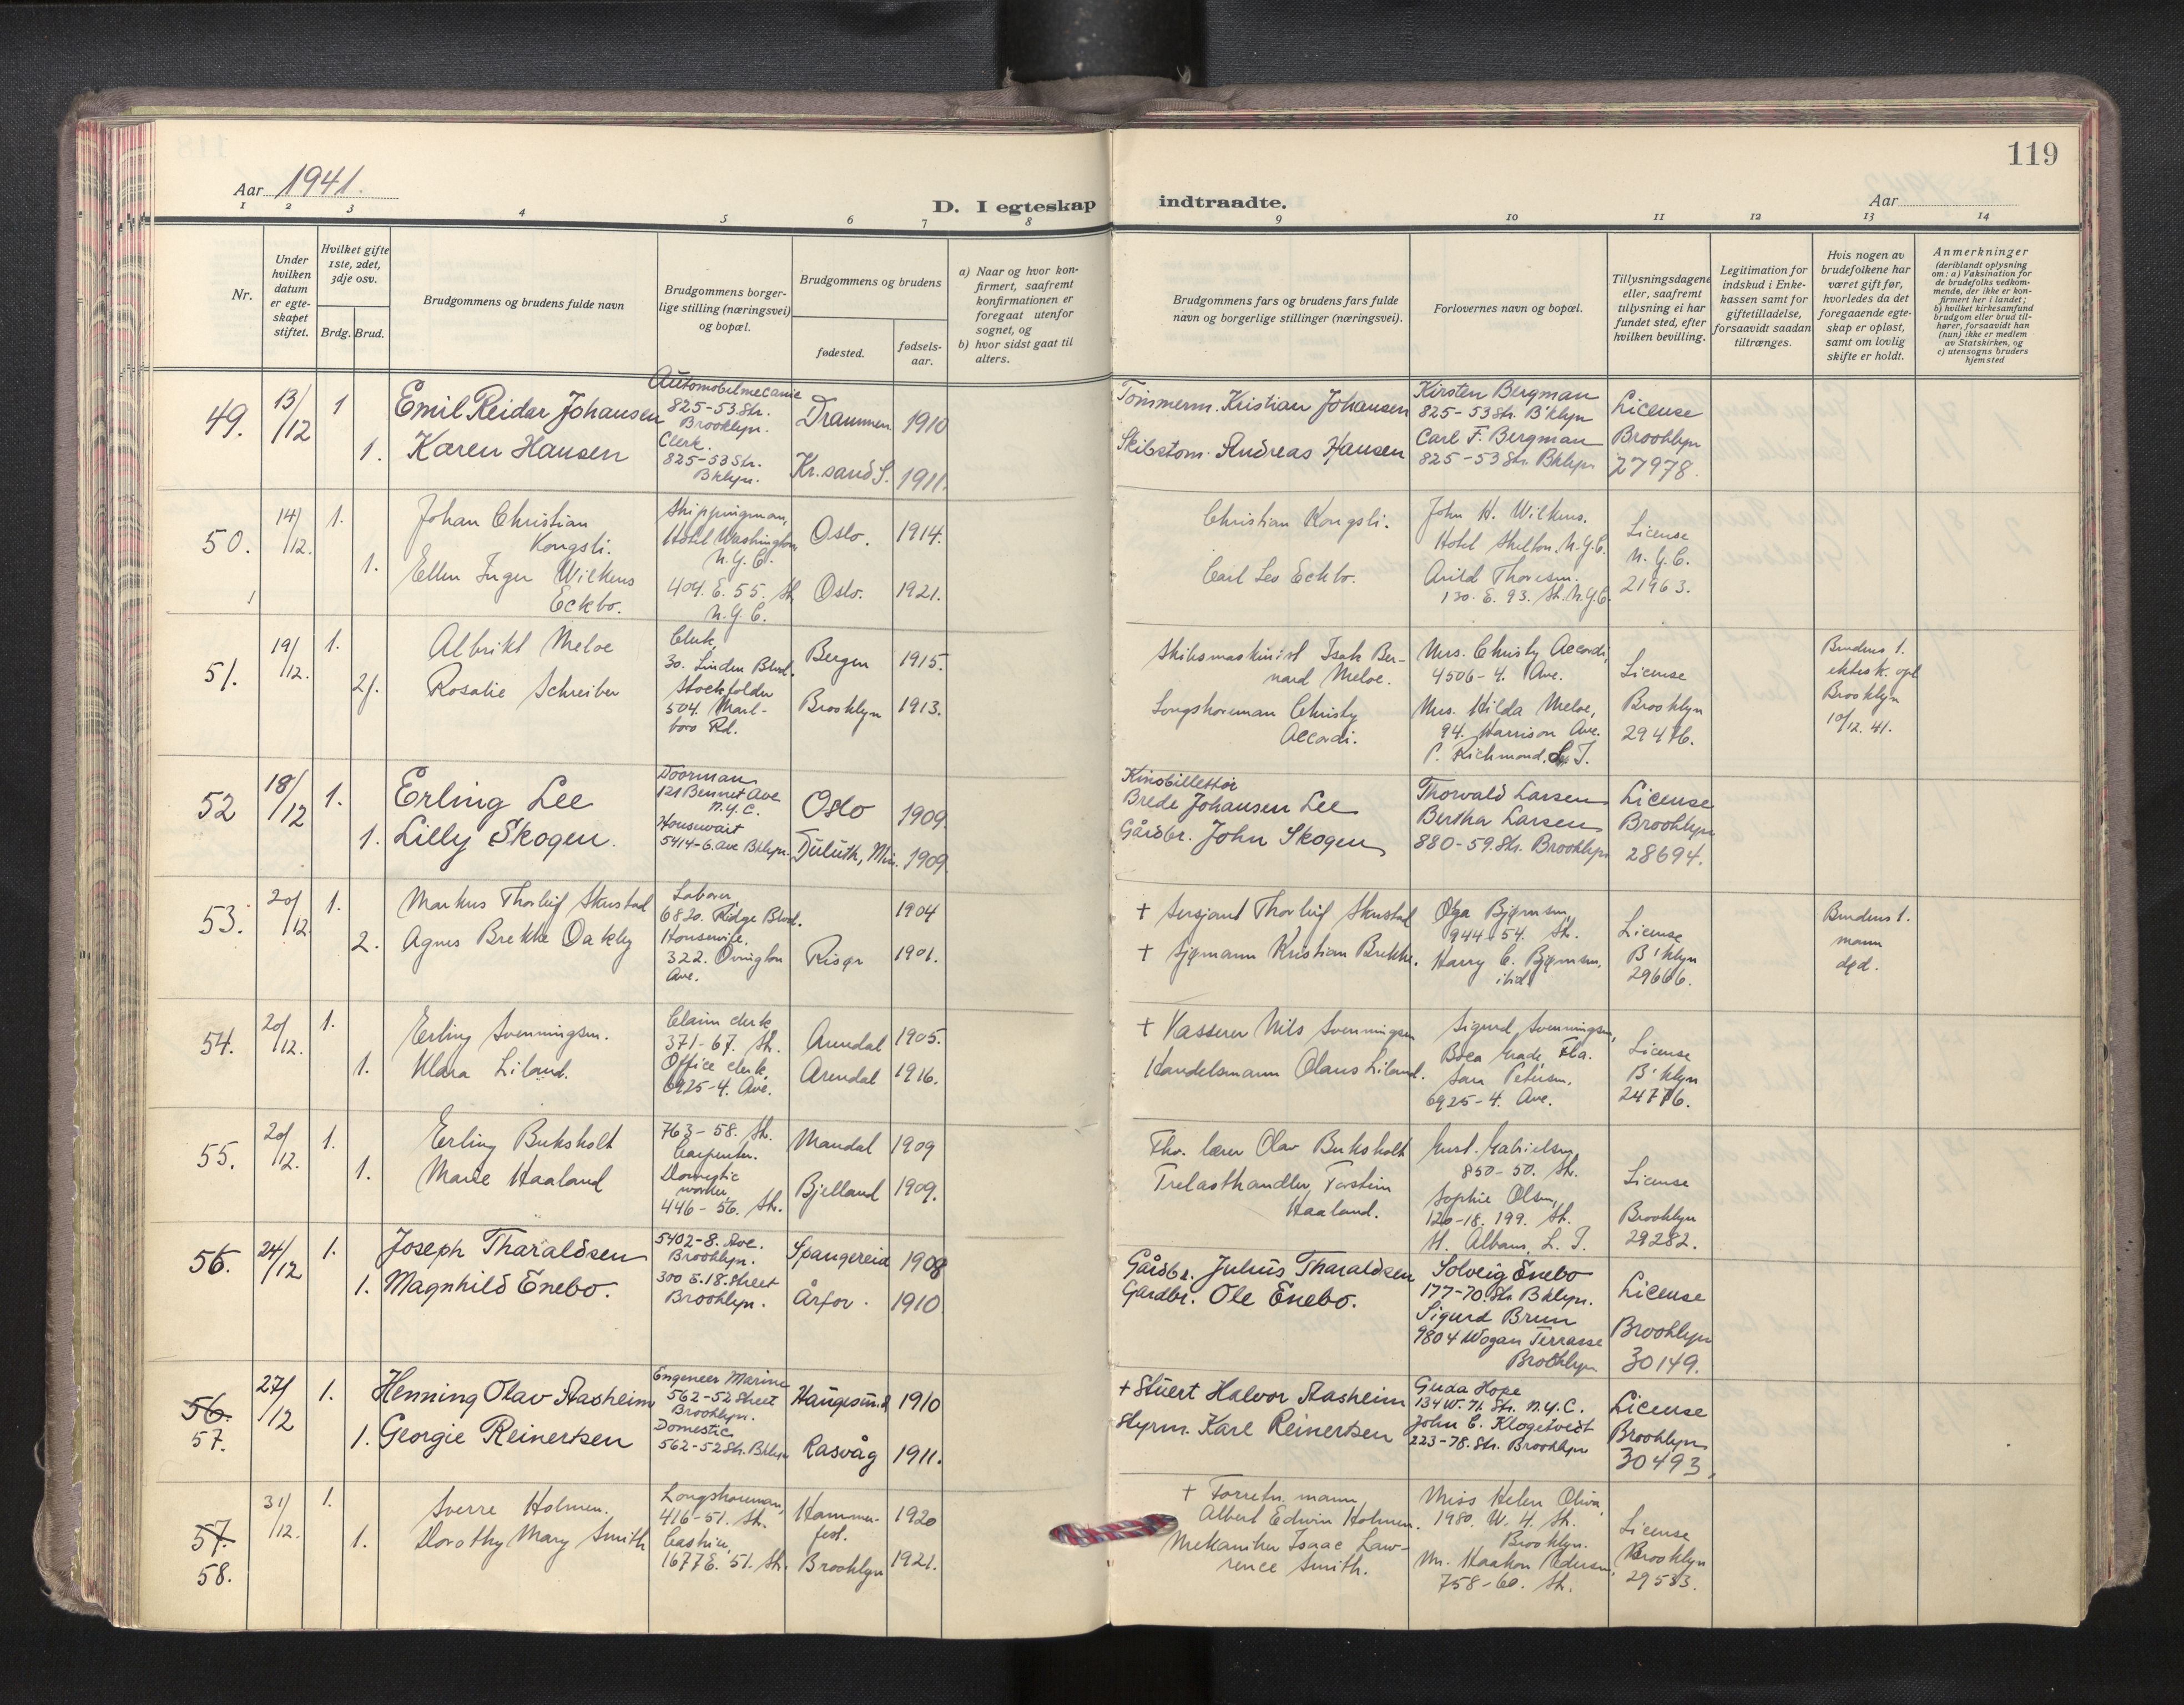 119
Aar 1941.
D. I egteskap indtraadte.
Aar
1 2 3 4 5 6 7 8 9 10 11 12 13 14
Nr.
Under hvilken datum er egte-skapet stiftet.
Hvilket gifte 1ste, 2det, 3dje osv.
Brdg. Brud.
Brudgommens og brudens fulde navn
Brudgommens borger-
lige stilling (næringsvei)
og bopæl.
Brudgommens og brudens
fødested.
fødsels-
aar.
a) Naar og hvor kon-
firmert, saafremt
konfirmationen er
foregaat utenfor
sognet, og
b) hvor sidst gaat til
alters.
Brudgommens fars og brudens fars fulde
navn og borgerlige stillinger (næringsvei).
Forlovernes navn og bopæl.
Tillysningsdagene
eller, saafremt
tillysning ei har
fundet sted, efter
hvilken bevilling.
Legitimation for
indskud i Enke-
kassen samt for
giftetilladelse,
forsaavidt saadan
tiltrænges.
Hvis nogen av
brudefolkene har
været gift før,
hvorledes da det
foregaaende egte-
skap er opløst,
samt om lovlig
skifte er holdt.
Anmerkninger
(deriblandt oplysning
om: a) Vaksination for
de brudefolks vedkom-
mende, der ikke er kon-
firmert her i landet;
b) hvilket kirkesamfund
brudgom eller brud til-
hører, forsaavidt han
(hun) ikke er medlem
av Statskirken, og
c) utensogns bruders
hjemsted
49.
13/12
1
Emil Reidar Johansen
Automobilmecanic
825-53 Str.
Brooklyn.
Drammen
1910
Tömmerm. Kristian Johansen
Kirsten Bergman
825-53 Str. B'klyn
License
Brooklyn
27978.
1.
Karen Hansen
Clerk.
825-53 Str.
Bklyn.
Kr.sand S.
1911.
Skibstøm. Andreas Hansen
Carl F. Bergman
825-53 Str. Bklyn
50.
14/12.
1.
Johan Christian
Kongsli.
Shippingman,
Hotel Washington
N.Y.C.
Oslo.
1914.
Christian Kongsli.
John H. Wilkens.
Hotel Shelton, N.Y.C.
License
N.Y.C.
21963.
1.
Ellen Inger Wilkens
Eckbo.
404. E. 55. St.
N.Y.C.
Oslo.
1921.
Carl Leo Eckbo.
Arild Thoresen.
130. E. 93. St. N.Y.C.
51.
19/12.
1.
Albrikt Meloe
Clerk,
30. Linden Blvd.
Bergen
1915.
Skibsmaskinist Isak Ber-
nard Meloe.
Mrs. Christy Accordi,
4506-4. Ave.
License
Brooklyn
29476.
Brudens 1.
ektesk. opl
Brooklyn
10/12. 41.
2.
Rosalie Schreiber
504. Marl-
boro Rd.
Brooklyn
1913.
Longshoreman Christy
Accordi.
Mrs. Hilda Meloe,
94. Harrison Ave.
P. Richmond, S. I.
52
18/12
1.
Erling Lee
Doorman
121 Bennet Ave
N.Y.C.
Oslo
1909.
Kinobillettör
Brede Johansen Lee
Thorvald Larsen
Bertha Larsen
880-59. Str. Brooklyn
License
Brooklyn
28694.
1.
Lilly Skogen.
Housewait
5414-6. Ave Bklyn.
Duluth, Min.
1909.
Gårdbr. John Skogen
53.
20/12.
1.
Markus Thorleif Skustad
Laborer,
6820. Ridge Blvd.
1904
+ Sersjant Thorleif Skustad
Olga Bjørnsen,
944-54. St.
License
B'klyn
29666.
Brudens 1.
mann
død.
2.
Agnes Brekke Oakley
Housewife.
322. Ovington
Ave.
Risør
1901.
+ Sjømann Kristian Brekke.
Harry C. Bjørnsen,
ibid.
54.
20/12.
1.
Erling Svenningsen.
Claim clerk
371-67. St.
Arendal
1905.
+ Kasserer Nils Svenningsen
Sigurd Svenningsen,
Boca Grade, Fla.
License
B'klyn
24776.
1.
Klara Liland.
Office clerk,
6925-4. Ave.
Arendal
1916.
Handelsmann Olaus Liland.
Sara Petersen.
6925-4. Ave.
55.
20/12.
1.
Erling Buksholt
763-58. St.
Carpenter.
Mandal
1909
Fhv. lærer Olav Buksholt
Gust. Gabrielsen,
850-50. St.
License
Brooklyn
29282.
1.
Marie Haaland
Domestic
worker,
446-56. St.
Bjelland
1909.
Trelasthandler, Torstein
Haaland.
Sophie Olsen,
120-18. 199. St.
St. Albans, L. I.
56.
24/12
1.
Joseph Tharaldsen
5402-8. Ave.
Brooklyn.
Spangereid
1908
Gårdbr. Julius Tharaldsen
Solveig Enebo
177-70. Str. Bklyn.
License
Brooklyn
30149.
1.
Magnhild Enebo.
300 E. 18. Street
Brooklyn.
Årfor.
1910
Gårdbr. Ole Enebo.
Sigurd Brun
9804 Wogan Terrasse
Brooklyn
56.
57.
27/12
1.
Henning Olav Aasheim
Engeneer Marine
562-52 Street
Brooklyn.
Haugesund
1910
+ Stuert Halvor Aasheim
Guda Hope
134 W. 71. Str. N.Y.C.
License
Brooklyn
30493,
1.
Georgie Reinertsen
Domestic
562-52 Str. Bklyn
Rasvåg
1911.
Styrm. Karl Reinertsen
John C. Klogetvedt
223-78. Str. Brooklyn
57.
58.
31/12.
1.
Sverre Holmen.
Longshoreman,
416-51. St.
Hammer-
fest.
1920
+ Forretn. mann
Albert Edwin Holmen.
Miss Helen Oliva,
1980. W. 4. St.
Brooklyn.
License
Brooklyn
29533.
1.
Dorothy Mary Smith
Cashier,
1677 E. 51. St.
Brooklyn
1921.
Mekaniker Isaac Law-
rence Smith.
Mr. Haakon Pedersen,
758-60. St.